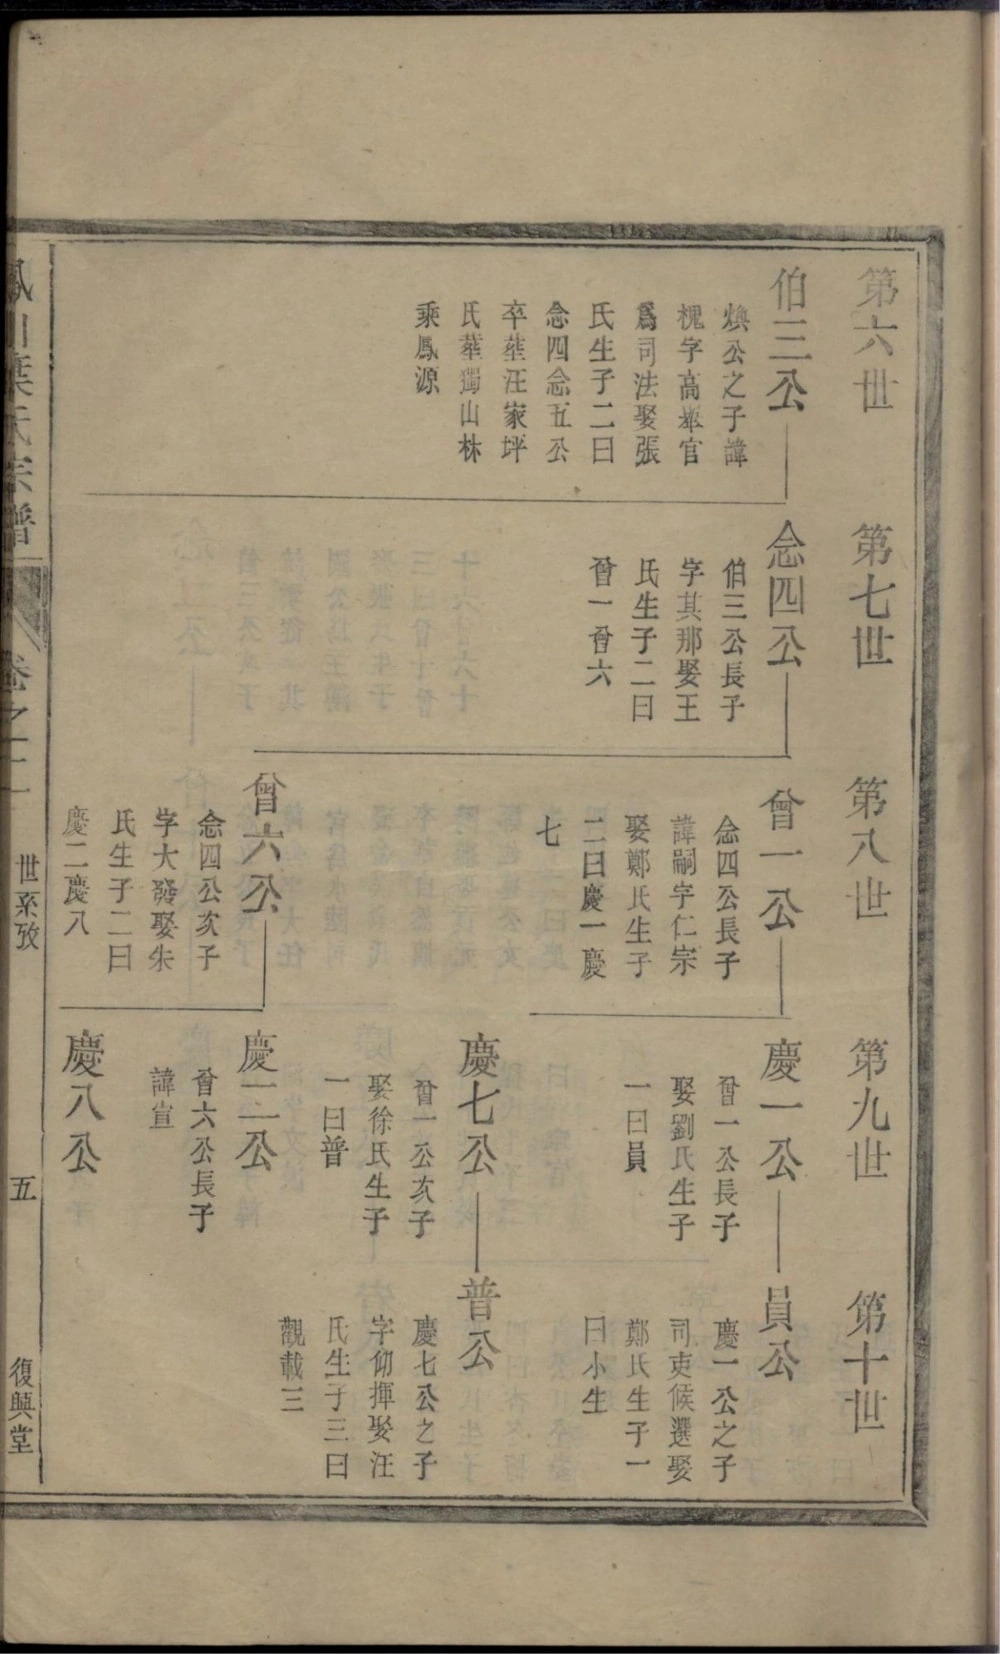 第六世
伯三公
煥公之子諱
槐字高舉官
爲司法娶張
氏生子二曰
念四念五公
卒塟汪家坪
氏塟獨山林
乘鳳源
第七世
念四公
伯三公長子
字其那娶王
氏生子二曰
曾一曾六
第八世
曾一公
念四公長子
諱嗣字仁宗
娶鄭氏生子
二曰慶一慶
七
曾六公
念四公次子
字大發娶朱
氏生子二曰
慶二慶八
第九世
慶一公
曾一公長子
娶劉氏生子
一曰員
慶七公
曾一公次子
娶徐氏生子
一曰普
慶二公
曾六公長子
諱宣
慶八公
第十世
員公
慶一公之子
司吏候選娶
鄭氏生子一
曰小生
普公
慶七公之子
字仰揮娶汪
氏生子三曰
觀載三
川葉氏宗譜
卷之二
世系攷
五
復興堂